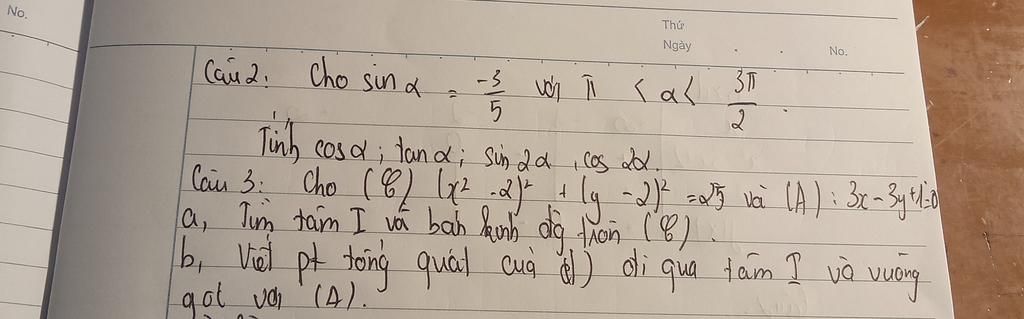 No.
Thứ
Ngày
No.
Câu 2: Cho sin α = -3/5 với π < α < 3π/2.
Tính cos α; tan α; sin 2α, cos 2α.
Câu 3: Cho (C) (x² - 2)² + (y - 2)² = 25 và (Δ): 3x - 3y + 1 = 0
a, Tìm tâm I và bán kính đg tròn (C).
b, Viết pt tổng quát của d) đi qua tâm I và vuông
góc với (Δ).